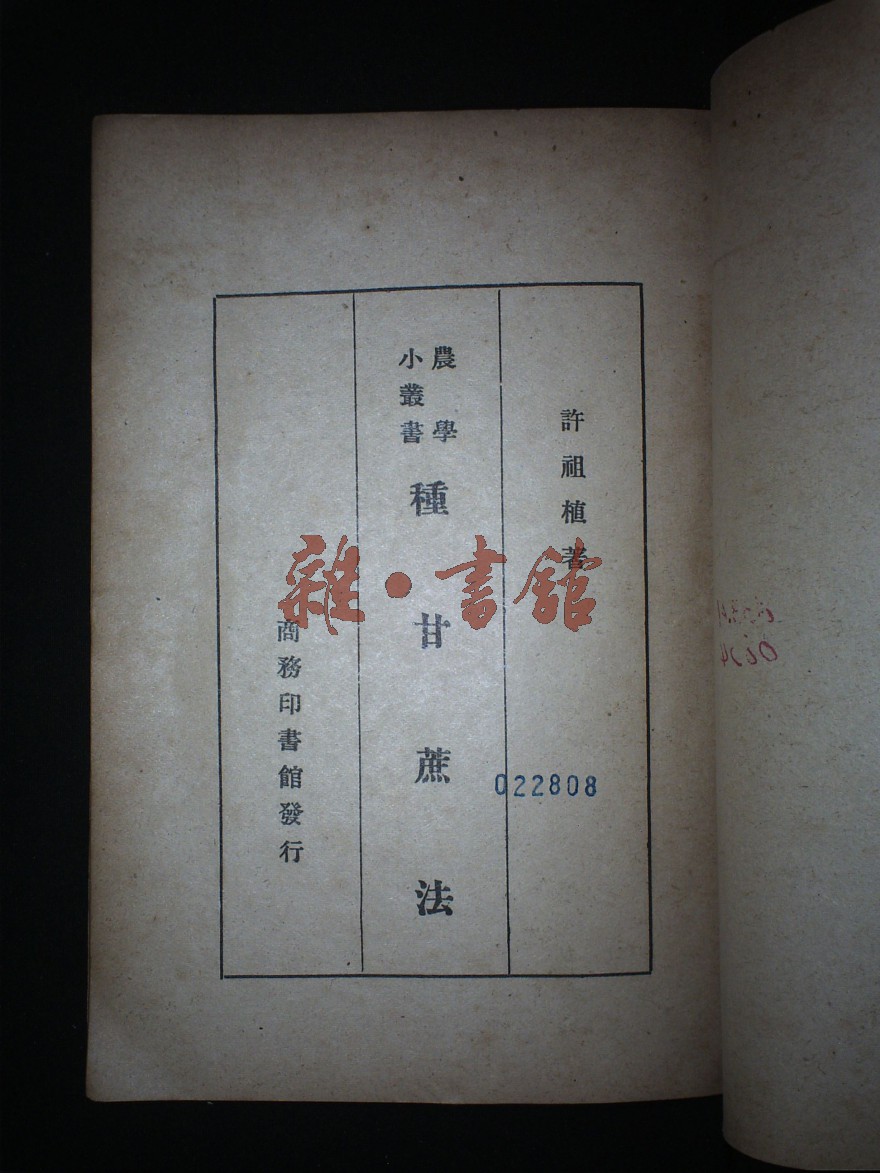 許祖植著
農學
小叢書
種甘蔗法
商務印書館發行
022808
雜·書館